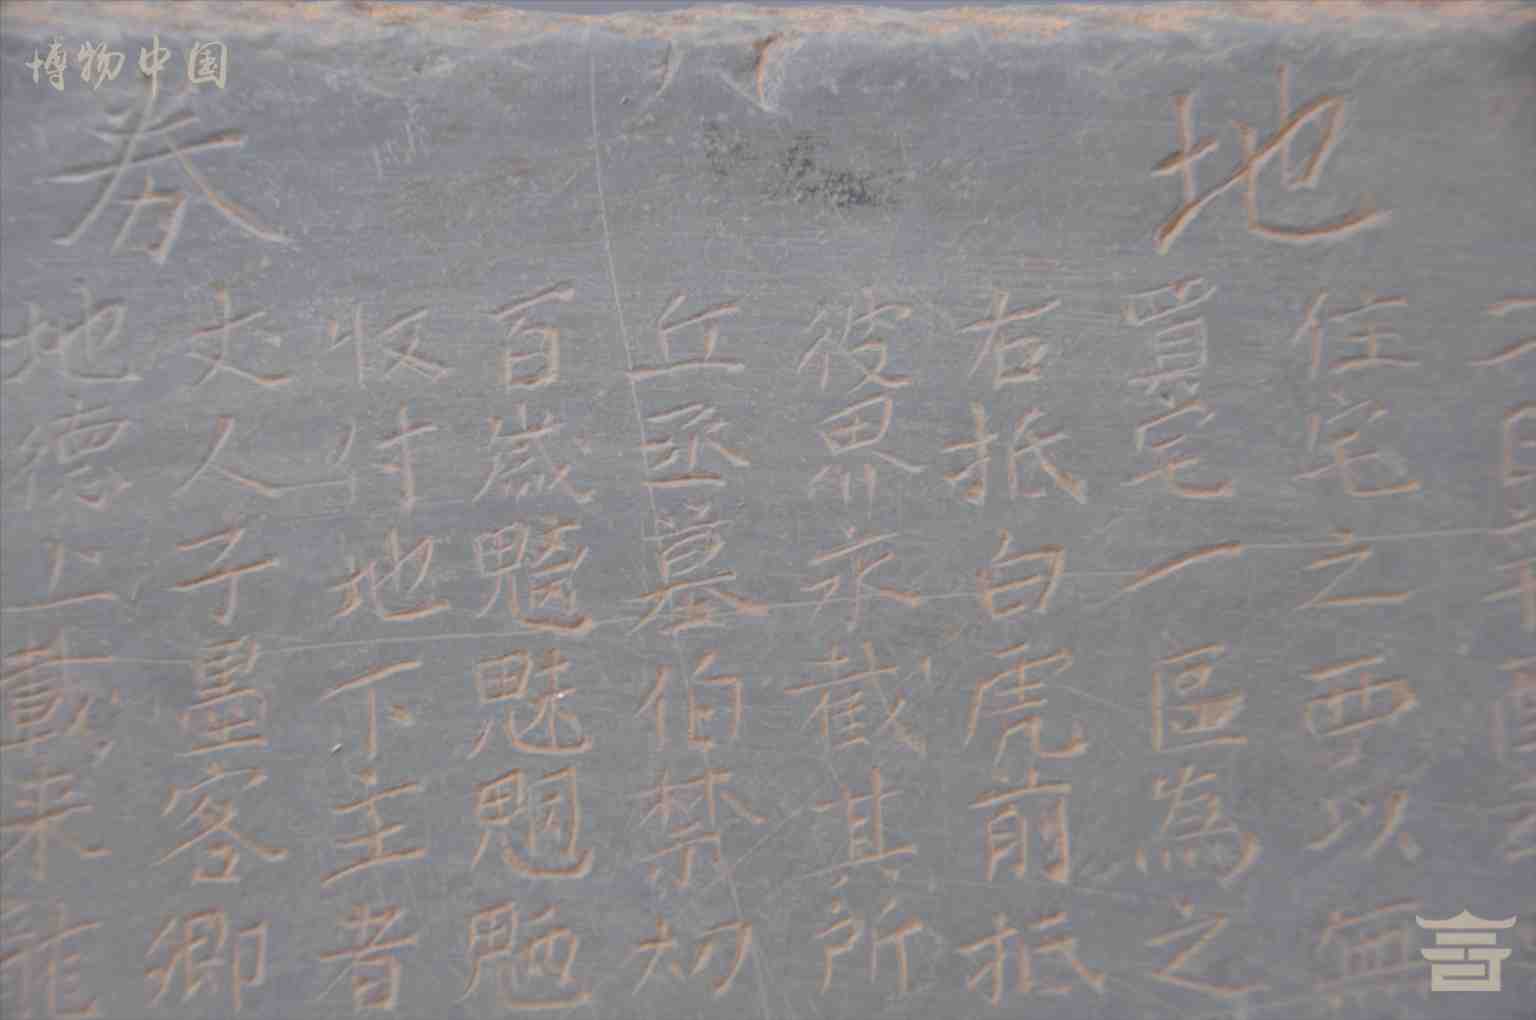 博物中国
地券
日
住宅之西以無
買宅一區為之
右抵白虎前抵
彼界永截其所
丘丞墓伯禁切
百歲魑魅魍魎
收付地下主者
丈人子墨客卿
地德上載来龍